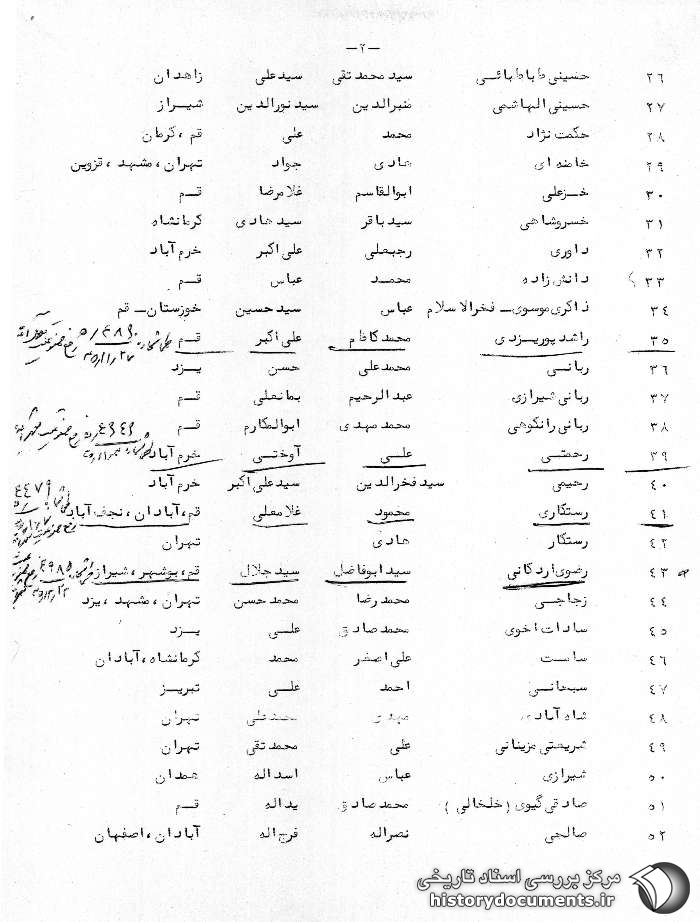 -۲-
۲۶ حسینی طباطبائی سید محمد تقی سید علی زاهدان
۲۷ حسینی الهاشمی منیرالدین سید نورالدین شیراز
۲۸ حکمت نژاد محمد علی قم ، کرمان
۲۹ خامنه ای هادی جواد تهران ، مشهد ، قزوین
۳۰ خزعلی ابوالقاسم غلامرضا قم
۳۱ خسروشاهی سید باقر سید هادی کرمانشاه
۳۲ داوری رجبعلی علی اکبر خرم آباد
۳۳ دانش زاده محمد عباس قم
۳۴ ذاکری موسوی - فخرالاسلام عباس سید حسین خوزستان - قم
۳۵ راشد پوریزدی محمد کاظم علی اکبر قم
۳۶ ربانی محمد علی حسن یزد
۳۷ ربانی شیرازی عبدالرحیم بمانعلی قم
۳۸ ربانی رانکوهی محمد مهدی ابوالمکارم قم
۳۹ رحمتی علی آوختی خرم آباد
۴۰ رحیمی سید فخرالدین سید علی اکبر خرم آباد
۴۱ رستگاری محمود غلامعلی قم ، آبادان ، نجف آباد
۴۲ رستگار هادی تهران
۴۳ رضوی اردکانی سید ابوفاضل سید جلال قم ، بوشهر ، شیراز
۴۴ زجاجی محمد رضا محمد حسن تهران ، مشهد ، یزد
۴۵ سادات اخوی محمد صادق علی یزد
۴۶ ساست علی اصغر محمد کرمانشاه ، آبادان
۴۷ سبحانی احمد علی تبریز
۴۸ شاه آبادی مهدی محمد علی تهران
۴۹ شریعتی مزینانی علی محمد تقی تهران
۵۰ شیرازی عباس اسداله همدان
۵۱ صادقی گیوی (خلخالی) محمد صادق یداله قم
۵۲ صالحی نصراله فرج اله آبادان ، اصفهان
مرکز بررسی اسناد تاریخی
historydocuments.ir